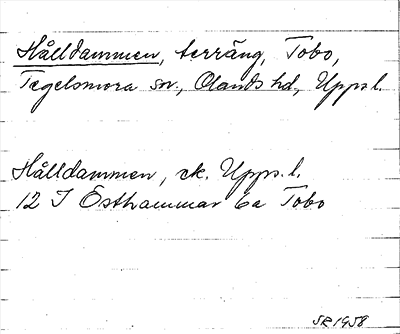 Hålldammen, terräng, Tobo,
Tegelsmora sn., Olands hd, Upps.l.
Hålldammen, ek. Upps.l.
12 I Östhammar 6a Tobo
SR 1958